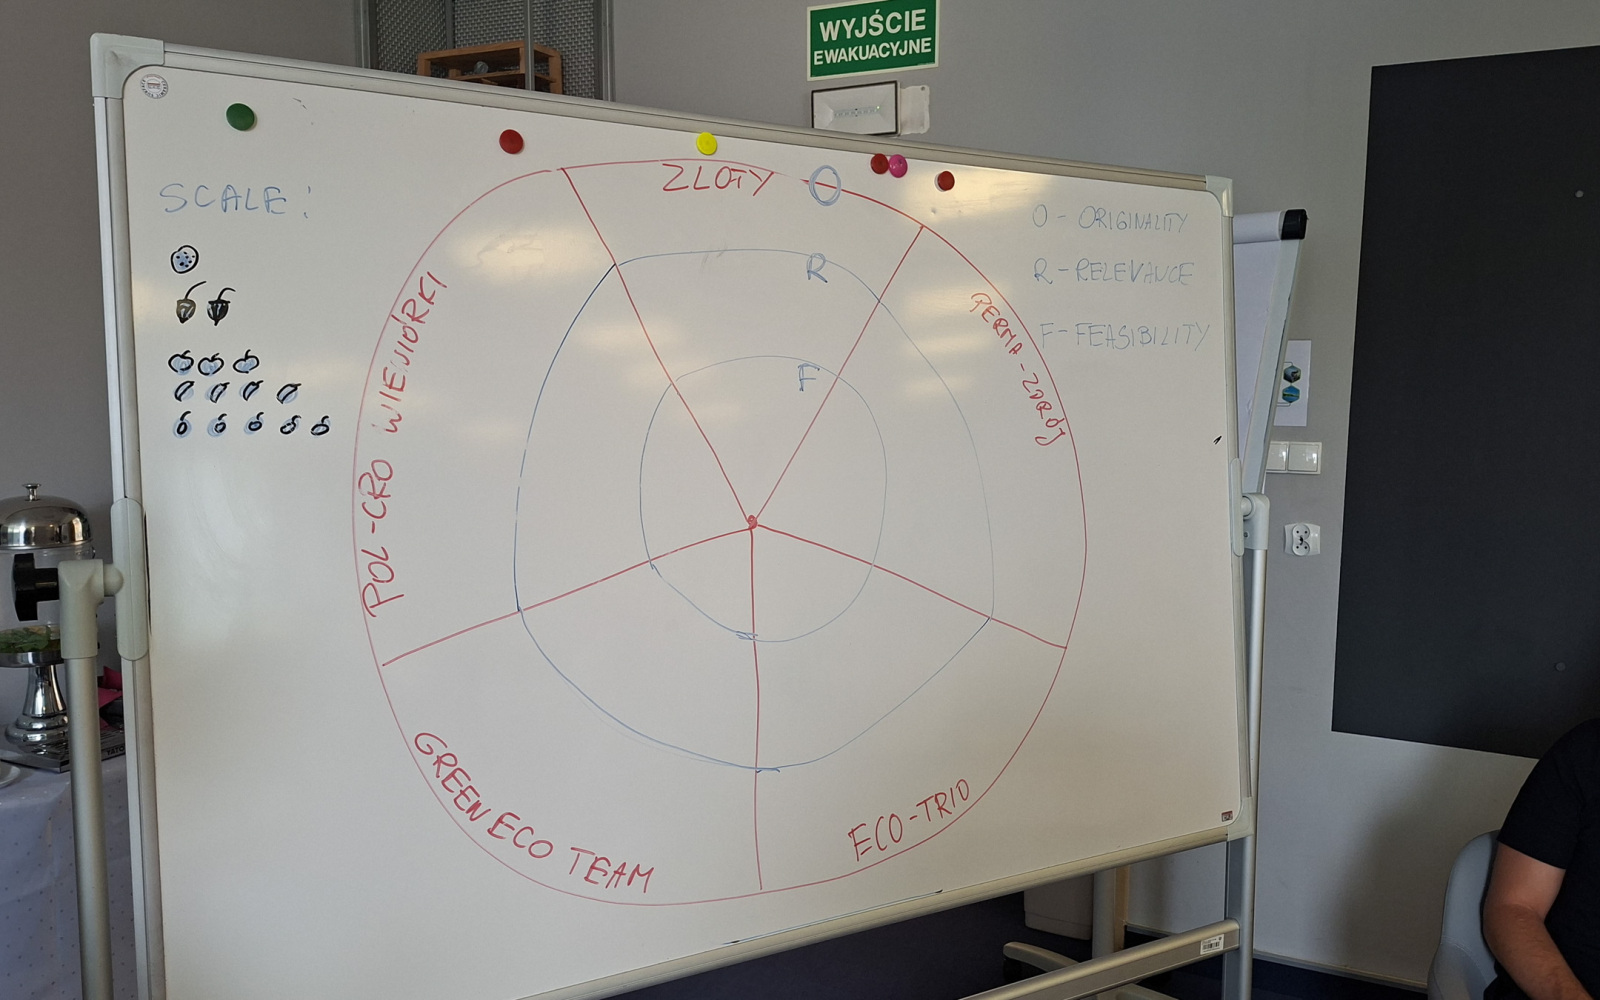 WYJŚCIE
EWAKUACYJNE
SCALE:
ZLOTY
O
R
F
O - ORIGINALITY
R - RELEVANCE
F - FEASIBILITY
POL-CRO WIEWIÓRKI
PERMA-ZDRÓJ
GREEN ECO TEAM
ECO-TRIO